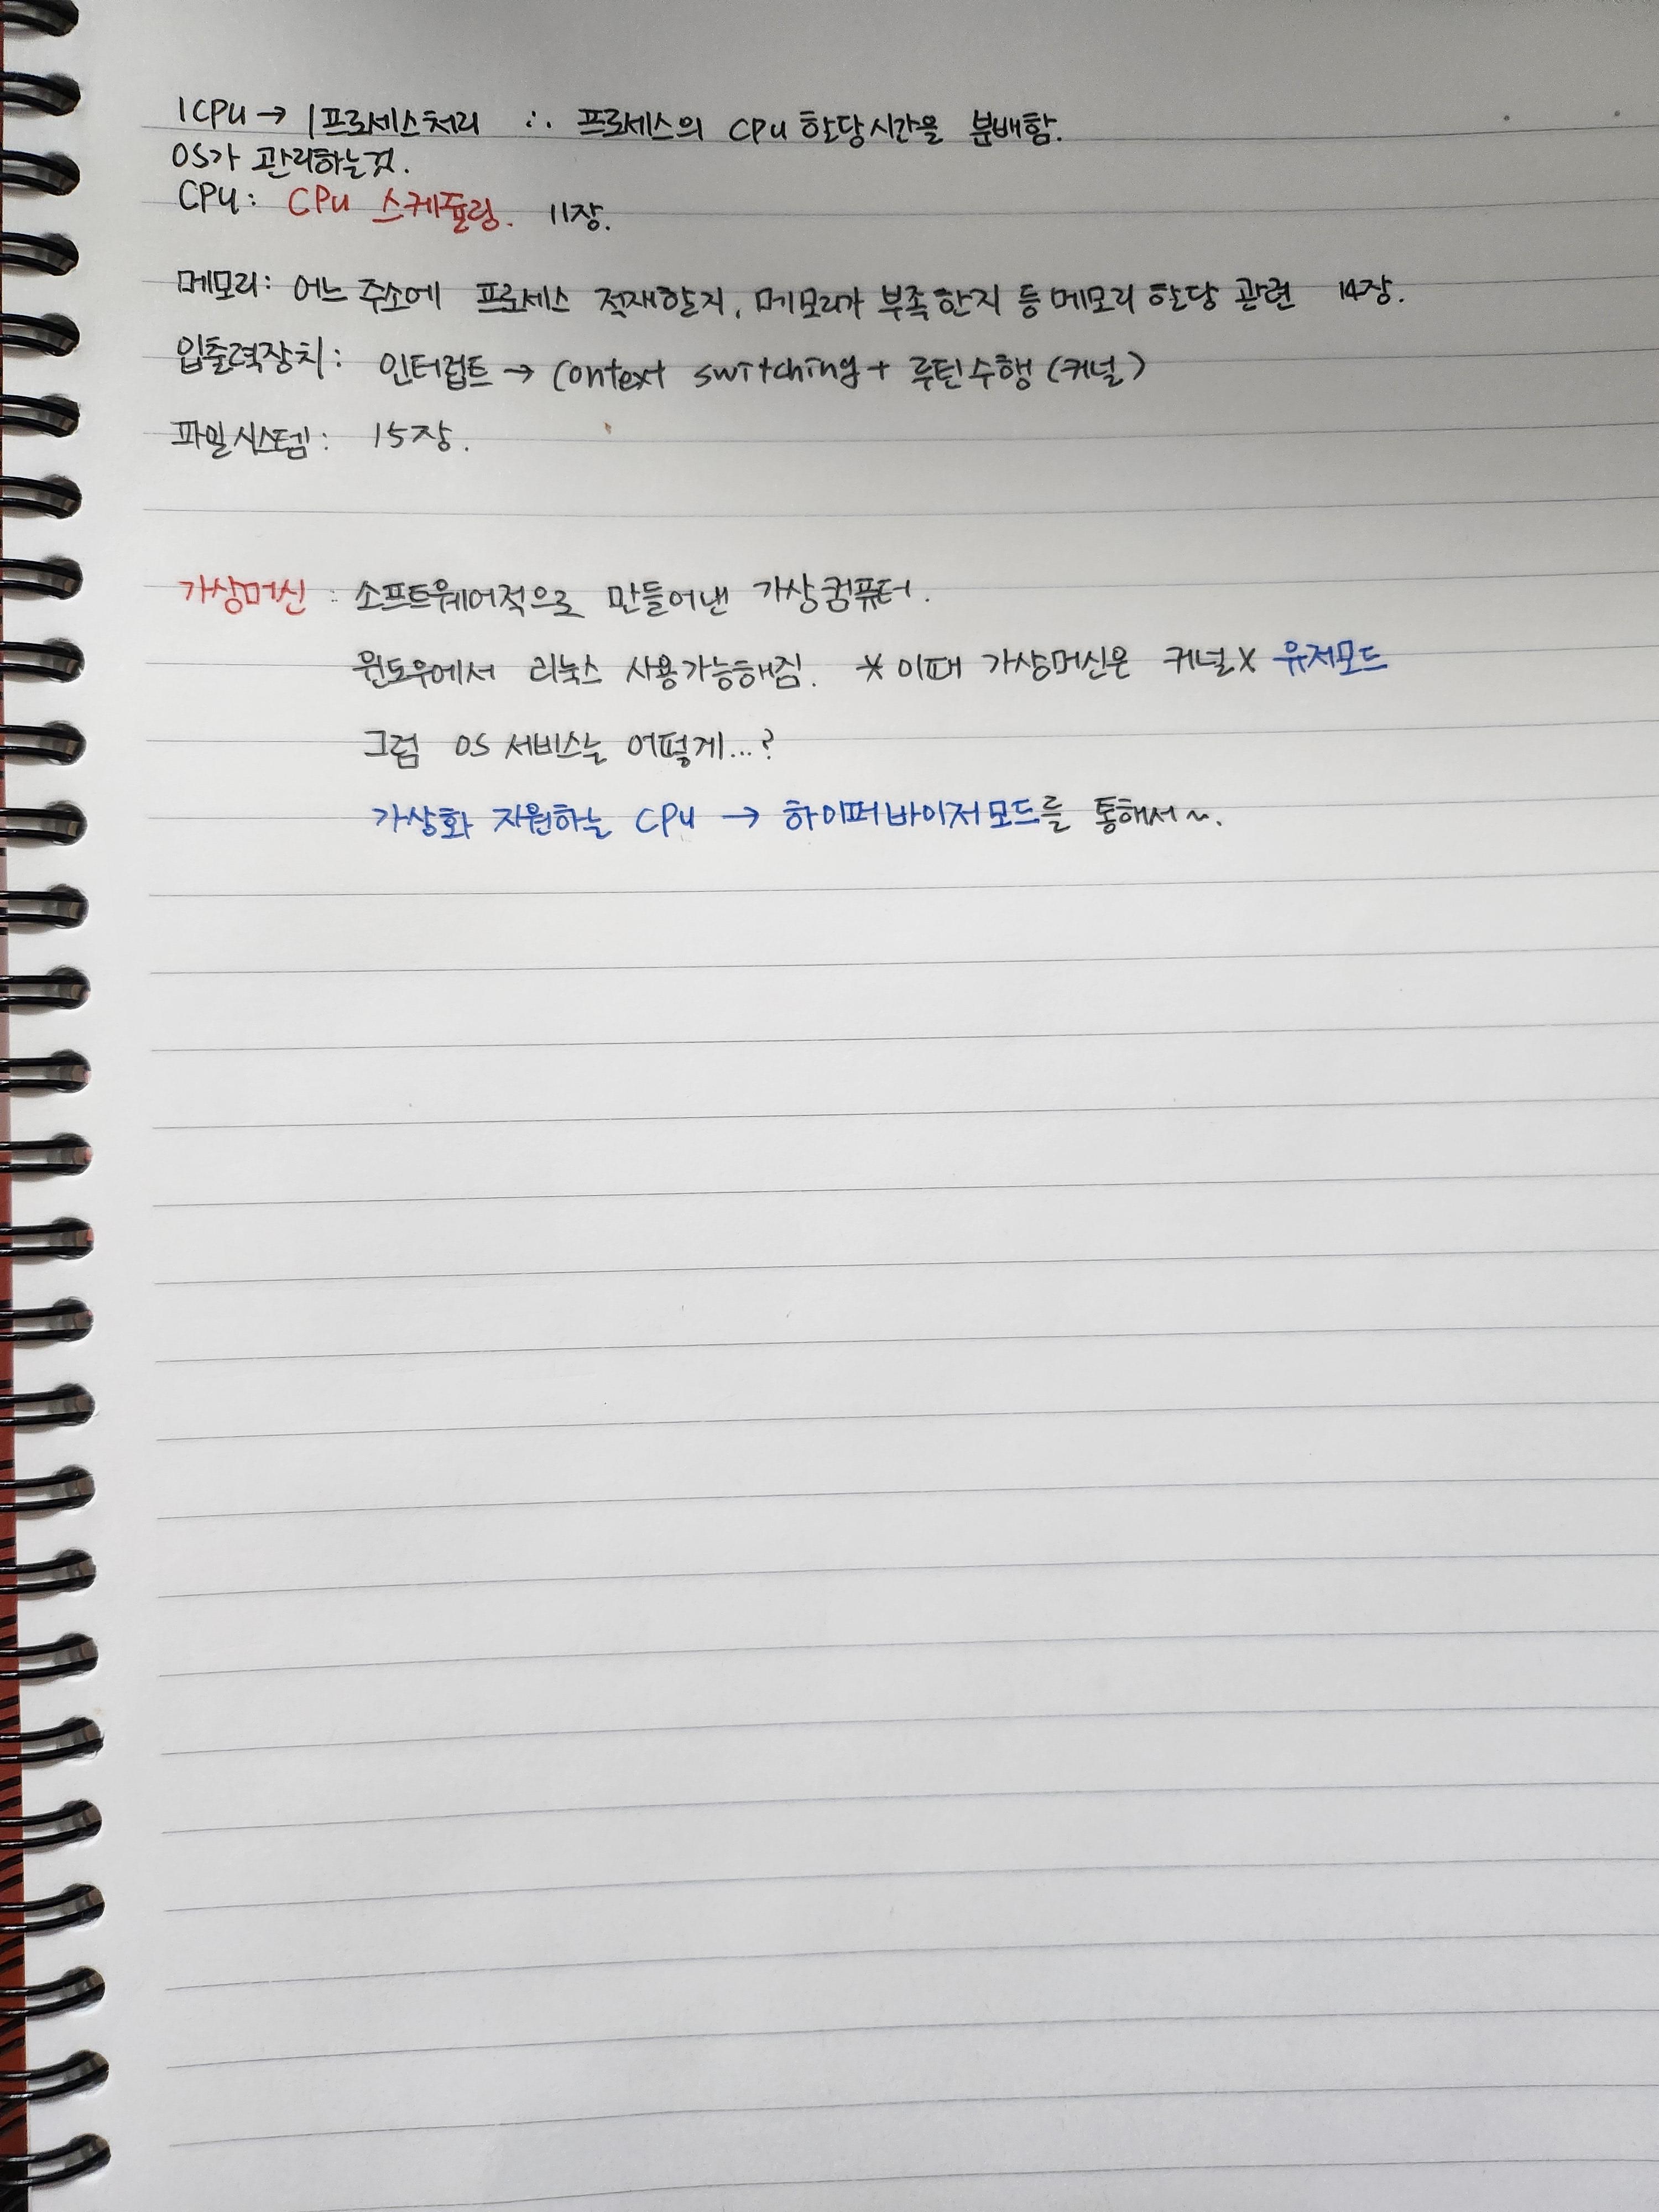 1CPU → 1프로세스처리 ∴ 프로세스의 CPU 할당시간을 분배함.
OS가 관리하는것.
CPU: CPU 스케쥴링. 11장.
메모리: 어느 주소에 프로세스 적재할지, 메모리가 부족한지 등 메모리 할당 관련 14장.
입출력장치: 인터럽트 → Context switching + 루틴수행 (커널)
파일시스템: 15장.
가상머신 : 소프트웨어적으로 만들어낸 가상컴퓨터.
윈도우에서 리눅스 사용가능해짐. * 이때 가상머신은 커널X 유저모드
그럼 OS 서비스는 어떻게...?
가상화 지원하는 CPU → 하이퍼바이저모드를 통해서~.